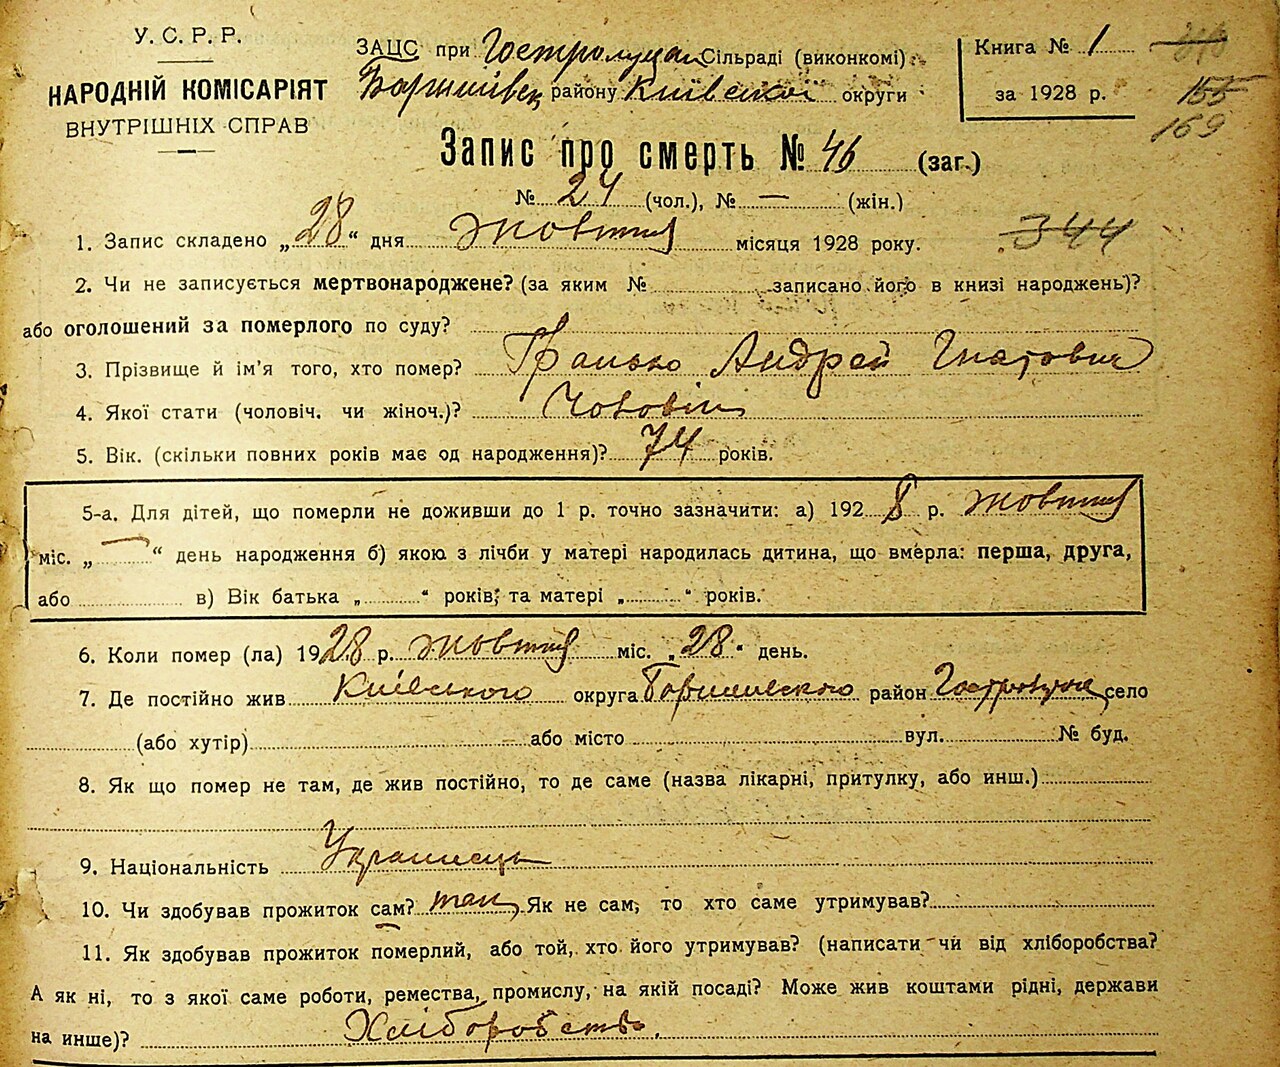 У. С. Р. Р.
НАРОДНІЙ КОМІСАРІЯТ
ВНУТРІШНІХ СПРАВ
ЗАЦС при Гостролуцкій Сільраді (виконкомі)
Баришівськ району Київської округи
Книга № 1
за 1928 р.
155
169
Запис про смерть № 46 (заг.)
№ 24 (чол.), № — (жін.)
1. Запис складено „28“ дня жовтня місяця 1928 року.
344
2. Чи не записується мертвонароджене? (за яким № записано його в книзі народжень)?
або оголошений за померлого по суду?
3. Прізвище й ім'я того, хто помер? Андрей Гнатович
4. Якої статі (чоловіч. чи жіноч.)? Чоловіч
5. Вік. (скільки повних років має од народження)? 74 років.
5-а. Для дітей, що померли не доживши до 1 р. точно зазначити: а) 1928 р. жовтня
міс. „—“ день народження б) якою з лічби у матері народилась дитина, що вмерла: перша, друга,
або в) Вік батька „ “ років; та матері „ “ років.
6. Коли помер (ла) 1928 р. жовтня міс. „28“ день.
7. Де постійно жив Київського округа Баришевского район село
(або хутір) або місто вул. № буд.
8. Як що помер не там, де жив постійно, то де саме (назва лікарні, притулку, або инш.)
9. Національність Украинець
10. Чи здобував прожиток сам? так Як не сам, то хто саме утримував?
11. Як здобував прожиток померлий, або той, хто його утримував? (написати чи від хліборобства?
А як ні, то з якої саме роботи, ремества, промислу, на якій посаді? Може жив коштами рідні, держави
на инше)? Хліборобство.